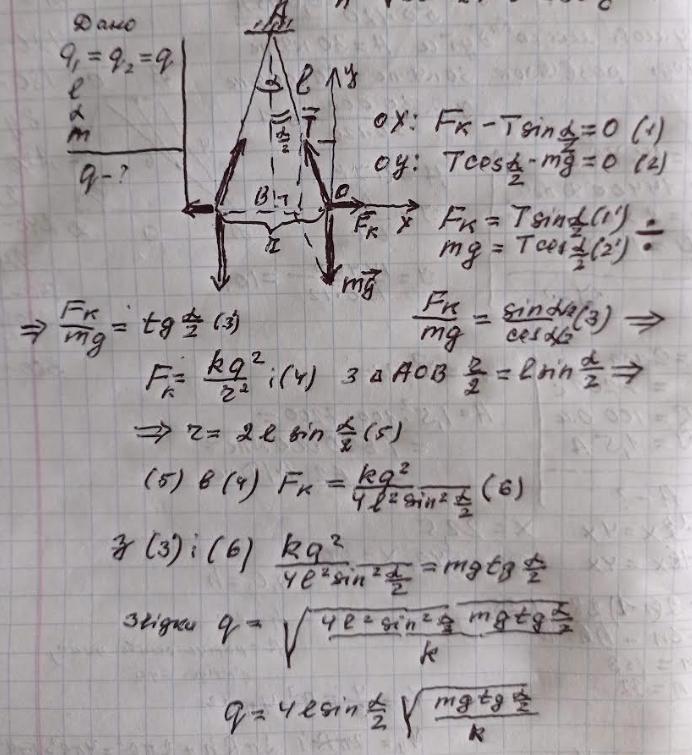 Дано
q₁ = q₂ = q
l
α
m
q - ?
A
α
l
y
α/2
T⃗
B
O
F⃗к
x
r
mg⃗
ox: Fк - T sin α/2 = 0 (1)
oy: T cos α/2 - mg = 0 (2)
Fк = T sin α/2 (1')
mg = T cos α/2 (2') ÷
Fк/mg = sin α/2 / cos α/2 (3) ⇒
⇒ Fк/mg = tg α/2 (3')
Fк = kq²/r² ; (4) з △AOB r/2 = l sin α/2 ⇒
⇒ r = 2l sin α/2 (5)
(5) в (4) Fк = kq²/4l² sin² α/2 (6)
З (3') і (6) kq²/4l² sin² α/2 = mg tg α/2
звідки q = √(4l² sin² α/2 mg tg α/2 / k)
q = 4l sin α/2 √(mg tg α/2 / k)